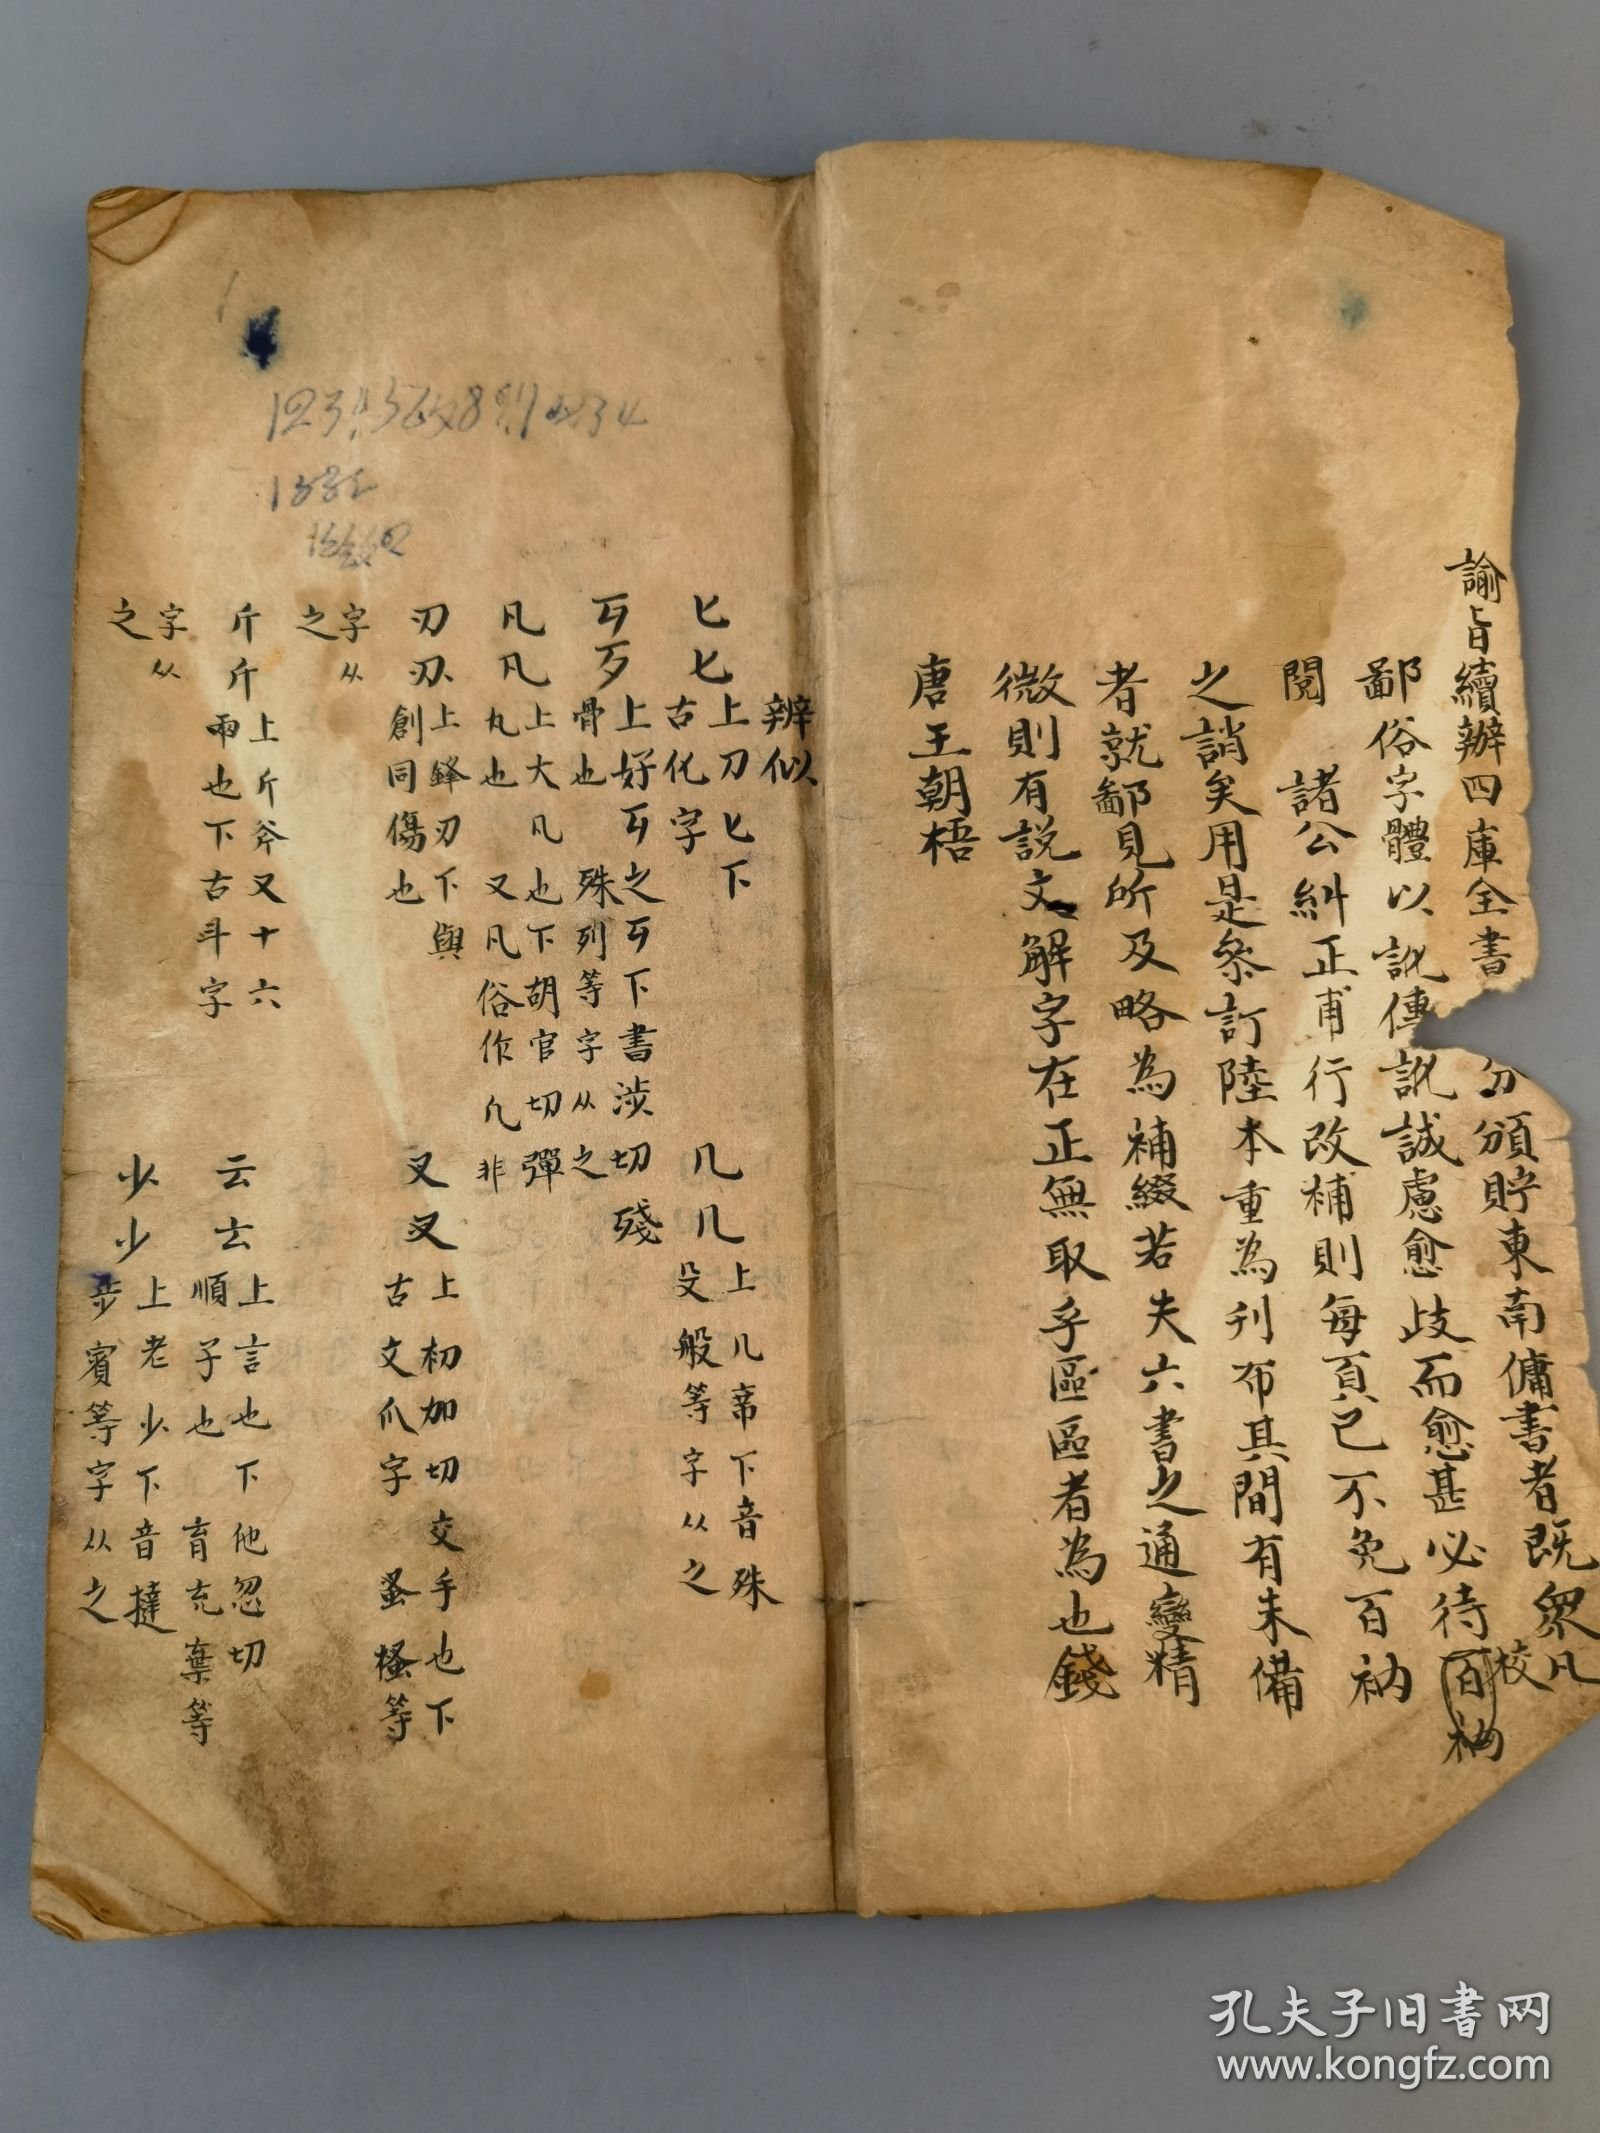 諭旨續辦四庫全書分頒貯東南傭書者既衆凡
鄙俗字體以訛傳訛誠慮愈歧而愈甚必待百衲
校
閱 諸公糾正甫行改補則每頁已不免百衲
之誚矣用是叅訂陸本重為刋布其間有未備
者就鄙見所及略為補綴若夫六書之通變精
微則有説文解字在正無取乎區區者為也錢
唐王朝梧
辨似
匕𠤎上刀匕下古化字
几𠘧上几席下音殊殳般等字从之
丂歹上好丂之丂下書涉切殘骨也 殊列等字从之
凡凡上大凡也下胡官切彈丸也 又凡俗作凢非
刃刅上鋒刃下與創同傷也
叉㕚上初加切交手也下古文爪字 蚤搔等字从之
斤斤上斤斧又十六兩也下古斗字
云𠫓上言也下他忽切順子也 育充棄等字从之
少少上老少下音撻步賓等字从之
孔夫子旧书网
www.kongfz.com